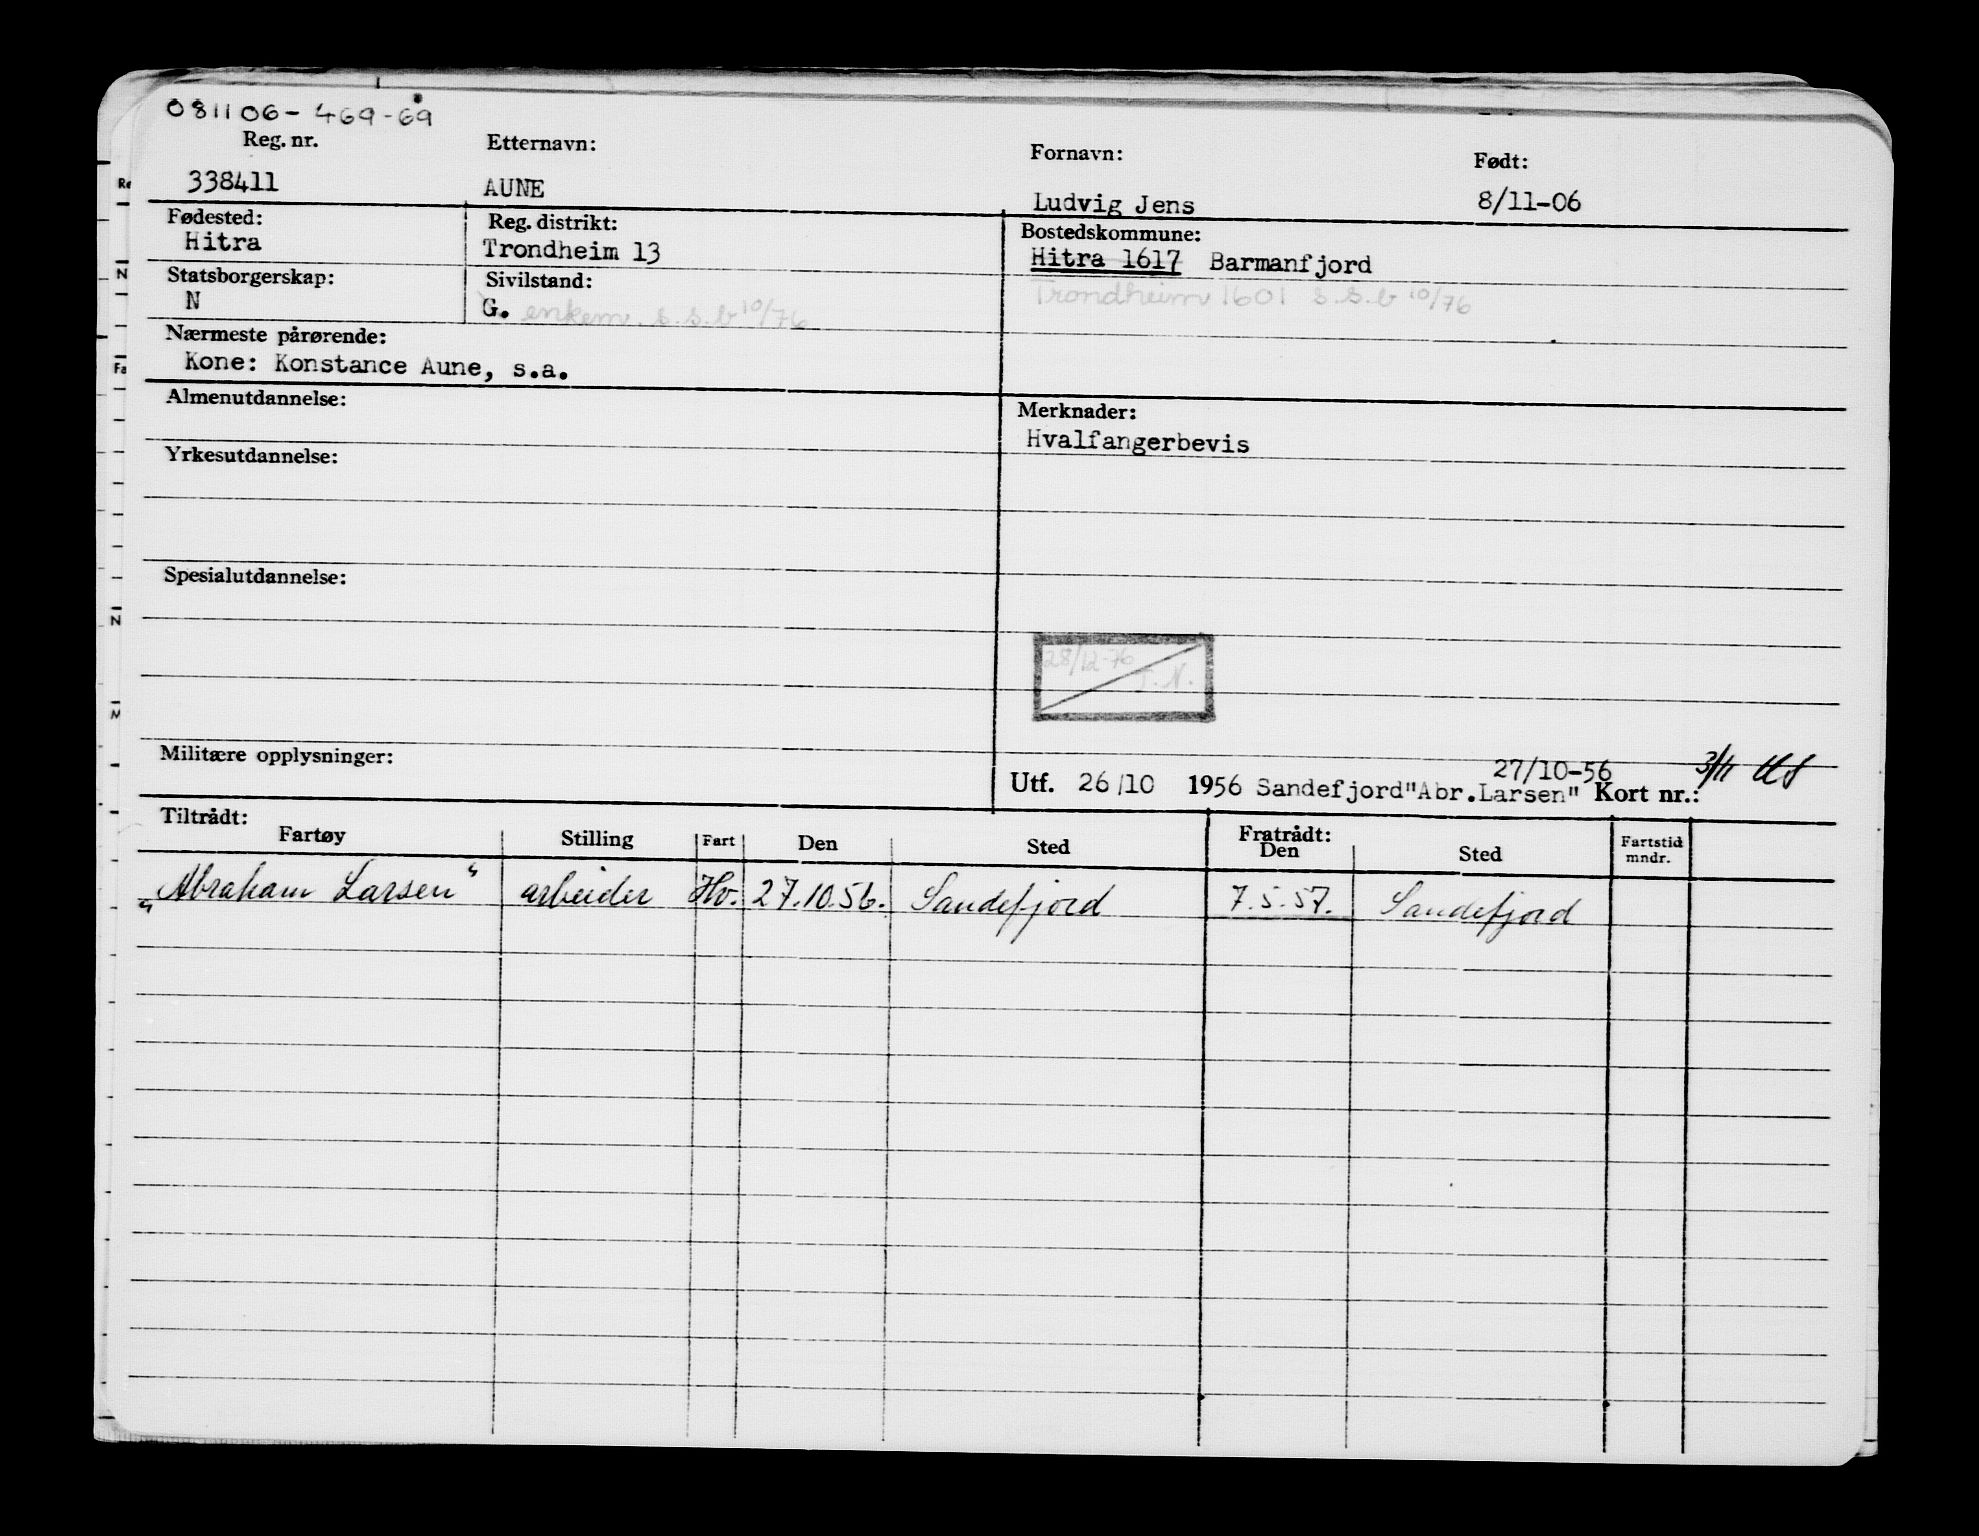 081106-469-69
Reg. nr. Etternavn: Fornavn: Født:
338411 AUNE Ludvig Jens 8/11-06
Fødested: Reg. distrikt: Bostedskommune:
Hitra Trondheim 13 Hitra 1617 Barmanfjord
Statsborgerskap: Sivilstand: Trondheim 1601 s.s.b 10/76
N G. enkem. s.s.b 10/76
Nærmeste pårørende:
Kone: Konstance Aune, s.a.
Almenutdannelse: Merknader:
Hvalfangerbevis
Yrkesutdannelse:
Spesialutdannelse:
28/12-76
T.N.
Militære opplysninger:
27/10-56 3/11
Utf. 26/10 1956 Sandefjord"Abr.Larsen" Kort nr.:
Tiltrådt: Fratrådt:
Fartøy Stilling Fart Den Sted Den Sted Fartstid mndr.
"Abraham Larsen" arbeider Hv. 27.10.56. Sandefjord 7.5.57. Sandefjord